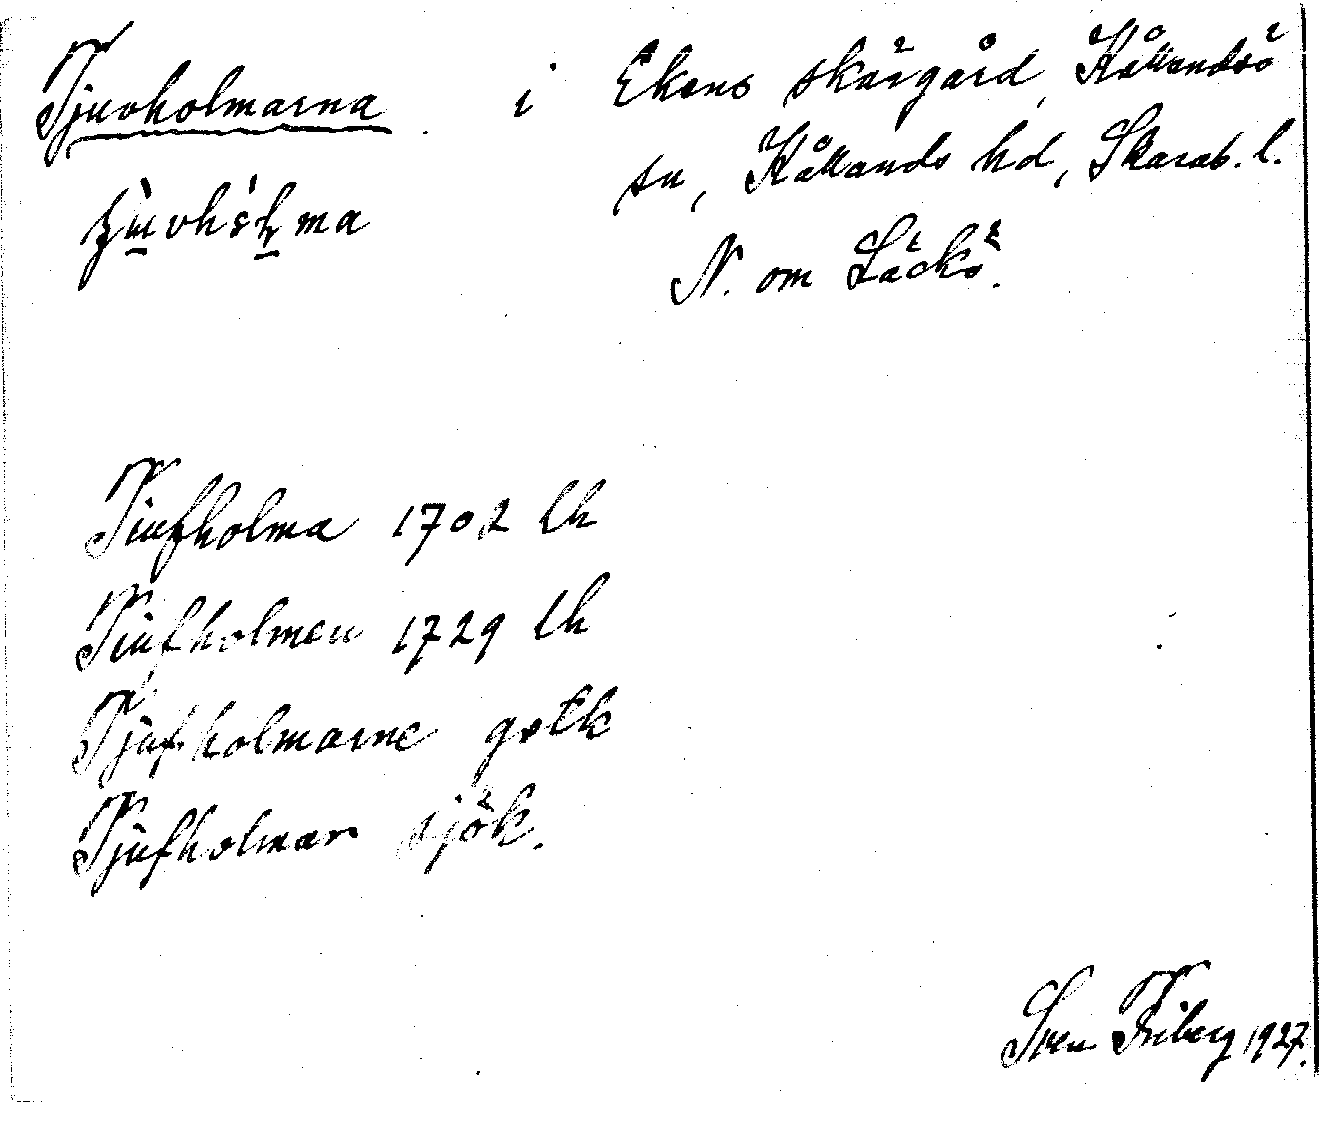 Tjuvholmarna i Ekens skärgård, Kållandsö
sn, Kållands hd, Skarab. l.
N. om Läckö.
Tiufholma 1702 lh
Tiufholmen 1729 lh
Tjufholmarne gstk
Tjufholmar sjök.
Sven Friberg 1927.